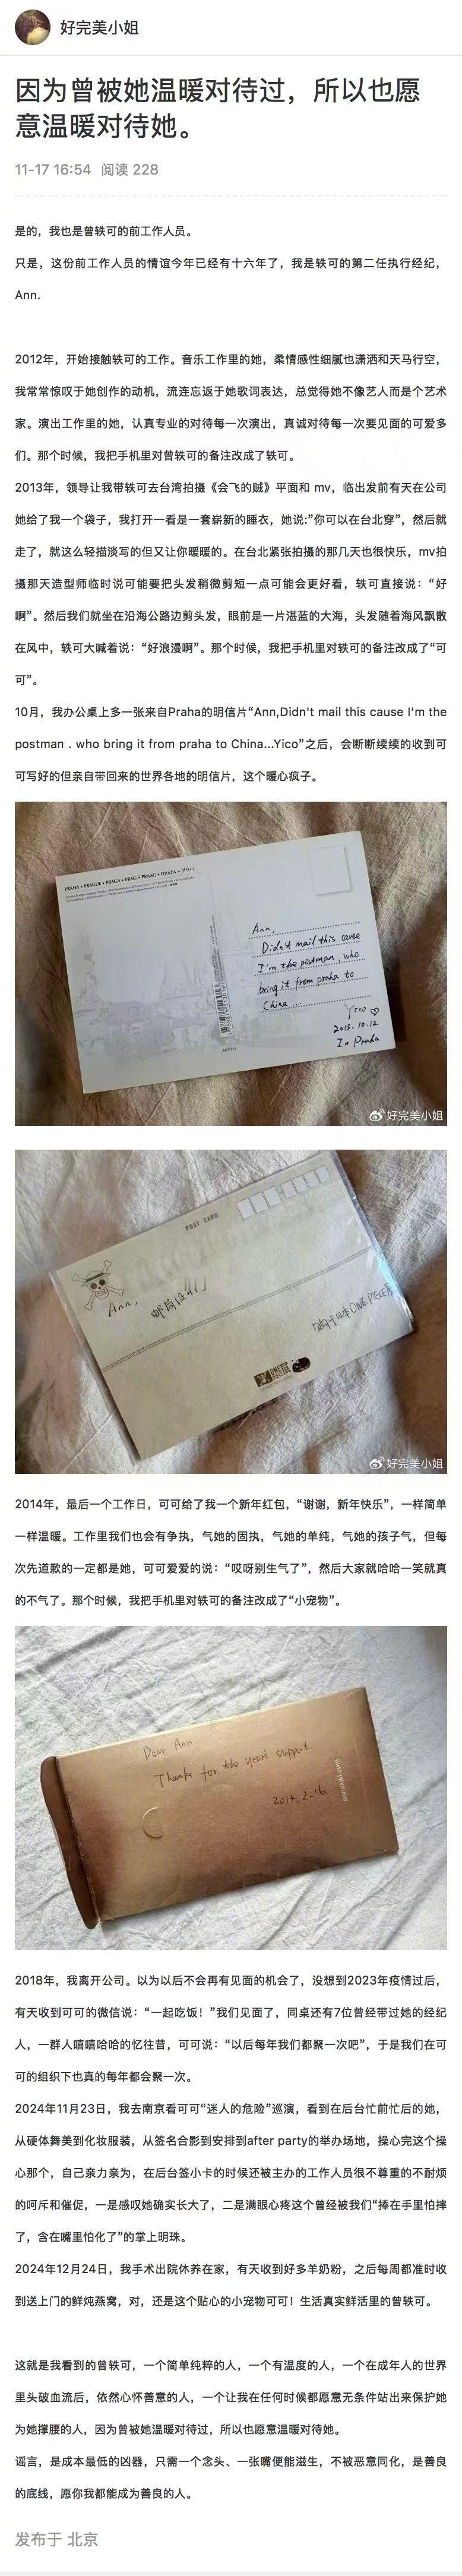 好完美小姐
因为曾被她温暖对待过，所以也愿
意温暖对待她。
11-17 16:54 阅读 228
是的，我也是曾轶可的前工作人员。
只是，这份前工作人员的情谊今年已经有十六年了，我是轶可的第二任执行经纪，
Ann.
2012年，开始接触轶可的工作。音乐工作里的她，柔情感性细腻也潇洒和天马行空，
我常常惊叹于她创作的动机，流连忘返于她歌词表达，总觉得她不像艺人而是个艺术
家。演出工作里的她，认真专业的对待每一次演出，真诚对待每一次要见面的可爱多
们。那个时候，我把手机里对曾轶可的备注改成了轶可。
2013年，领导让我带轶可去台湾拍摄《会飞的贼》平面和 mv，临出发前有天在公司
她给了我一个袋子，我打开一看是一套崭新的睡衣，她说:”你可以在台北穿”，然后就
走了，就这么轻描淡写的但又让你暖暖的。在台北紧张拍摄的那几天也很快乐，mv拍
摄那天造型师临时说可能要把头发稍微剪短一点可能会更好看，轶可直接说：“好
啊”。然后我们就坐在沿海公路边剪头发，眼前是一片湛蓝的大海，头发随着海风飘散
在风中，轶可大喊着说：“好浪漫啊”。那个时候，我把手机里对轶可的备注改成了“可
可”。
10月，我办公桌上多一张来自Praha的明信片“Ann,Didn't mail this cause I'm the
postman . who bring it from praha to China...Yico”之后，会断断续续的收到可
可写好的但亲自带回来的世界各地的明信片，这个暖心疯子。
PRAHA • PRAGUE • PRAGA • PRAG • PRAAG • ПРАГА • プラハ
Ann,
Didn't mail this cause
I'm the postman, who
bring it from praha to
China ...
Yico ♡
2013.10.12
In Praha
好完美小姐
POST CARD
Ann,
邮局没开门
ONE PIECE
好完美小姐
2014年，最后一个工作日，可可给了我一个新年红包，“谢谢，新年快乐”，一样简单
一样温暖。工作里我们也会有争执，气她的固执，气她的单纯，气她的孩子气，但每
次先道歉的一定都是她，可可爱爱的说：“哎呀别生气了”，然后大家就哈哈一笑就真
的不气了。那个时候，我把手机里对轶可的备注改成了“小宠物”。
Dear Ann
Thanks for the years support.
2014.2.16
2018年，我离开公司。以为以后不会再有见面的机会了，没想到2023年疫情过后，
有天收到可可的微信说：“一起吃饭！”我们见面了，同桌还有7位曾经带过她的经纪
人，一群人嘻嘻哈哈的忆往昔，可可说：“以后每年我们都聚一次吧”，于是我们在可
可的组织下也真的每年都会聚一次。
2024年11月23日，我去南京看可可“迷人的危险”巡演，看到在后台忙前忙后的她，
从硬体舞美到化妆服装，从签名合影到安排到after party的举办场地，操心完这个操
心那个，自己亲力亲为，在后台签小卡的时候还被主办的工作人员很不尊重的不耐烦
的呵斥和催促，一是感叹她确实长大了，二是满眼心疼这个曾经被我们“捧在手里怕摔
了，含在嘴里怕化了”的掌上明珠。
2024年12月24日，我手术出院休养在家，有天收到好多羊奶粉，之后每周都准时收
到送上门的鲜炖燕窝，对，还是这个贴心的小宠物可可！生活真实鲜活里的曾轶可。
这就是我看到的曾轶可，一个简单纯粹的人，一个有温度的人，一个在成年人的世界
里头破血流后，依然心怀善意的人，一个让我在任何时候都愿意无条件站出来保护她
为她撑腰的人，因为曾被她温暖对待过，所以也愿意温暖对待她。
谣言，是成本最低的凶器，只需一个念头、一张嘴便能滋生，不被恶意同化，是善良
的底线，愿你我都能成为善良的人。
发布于 北京